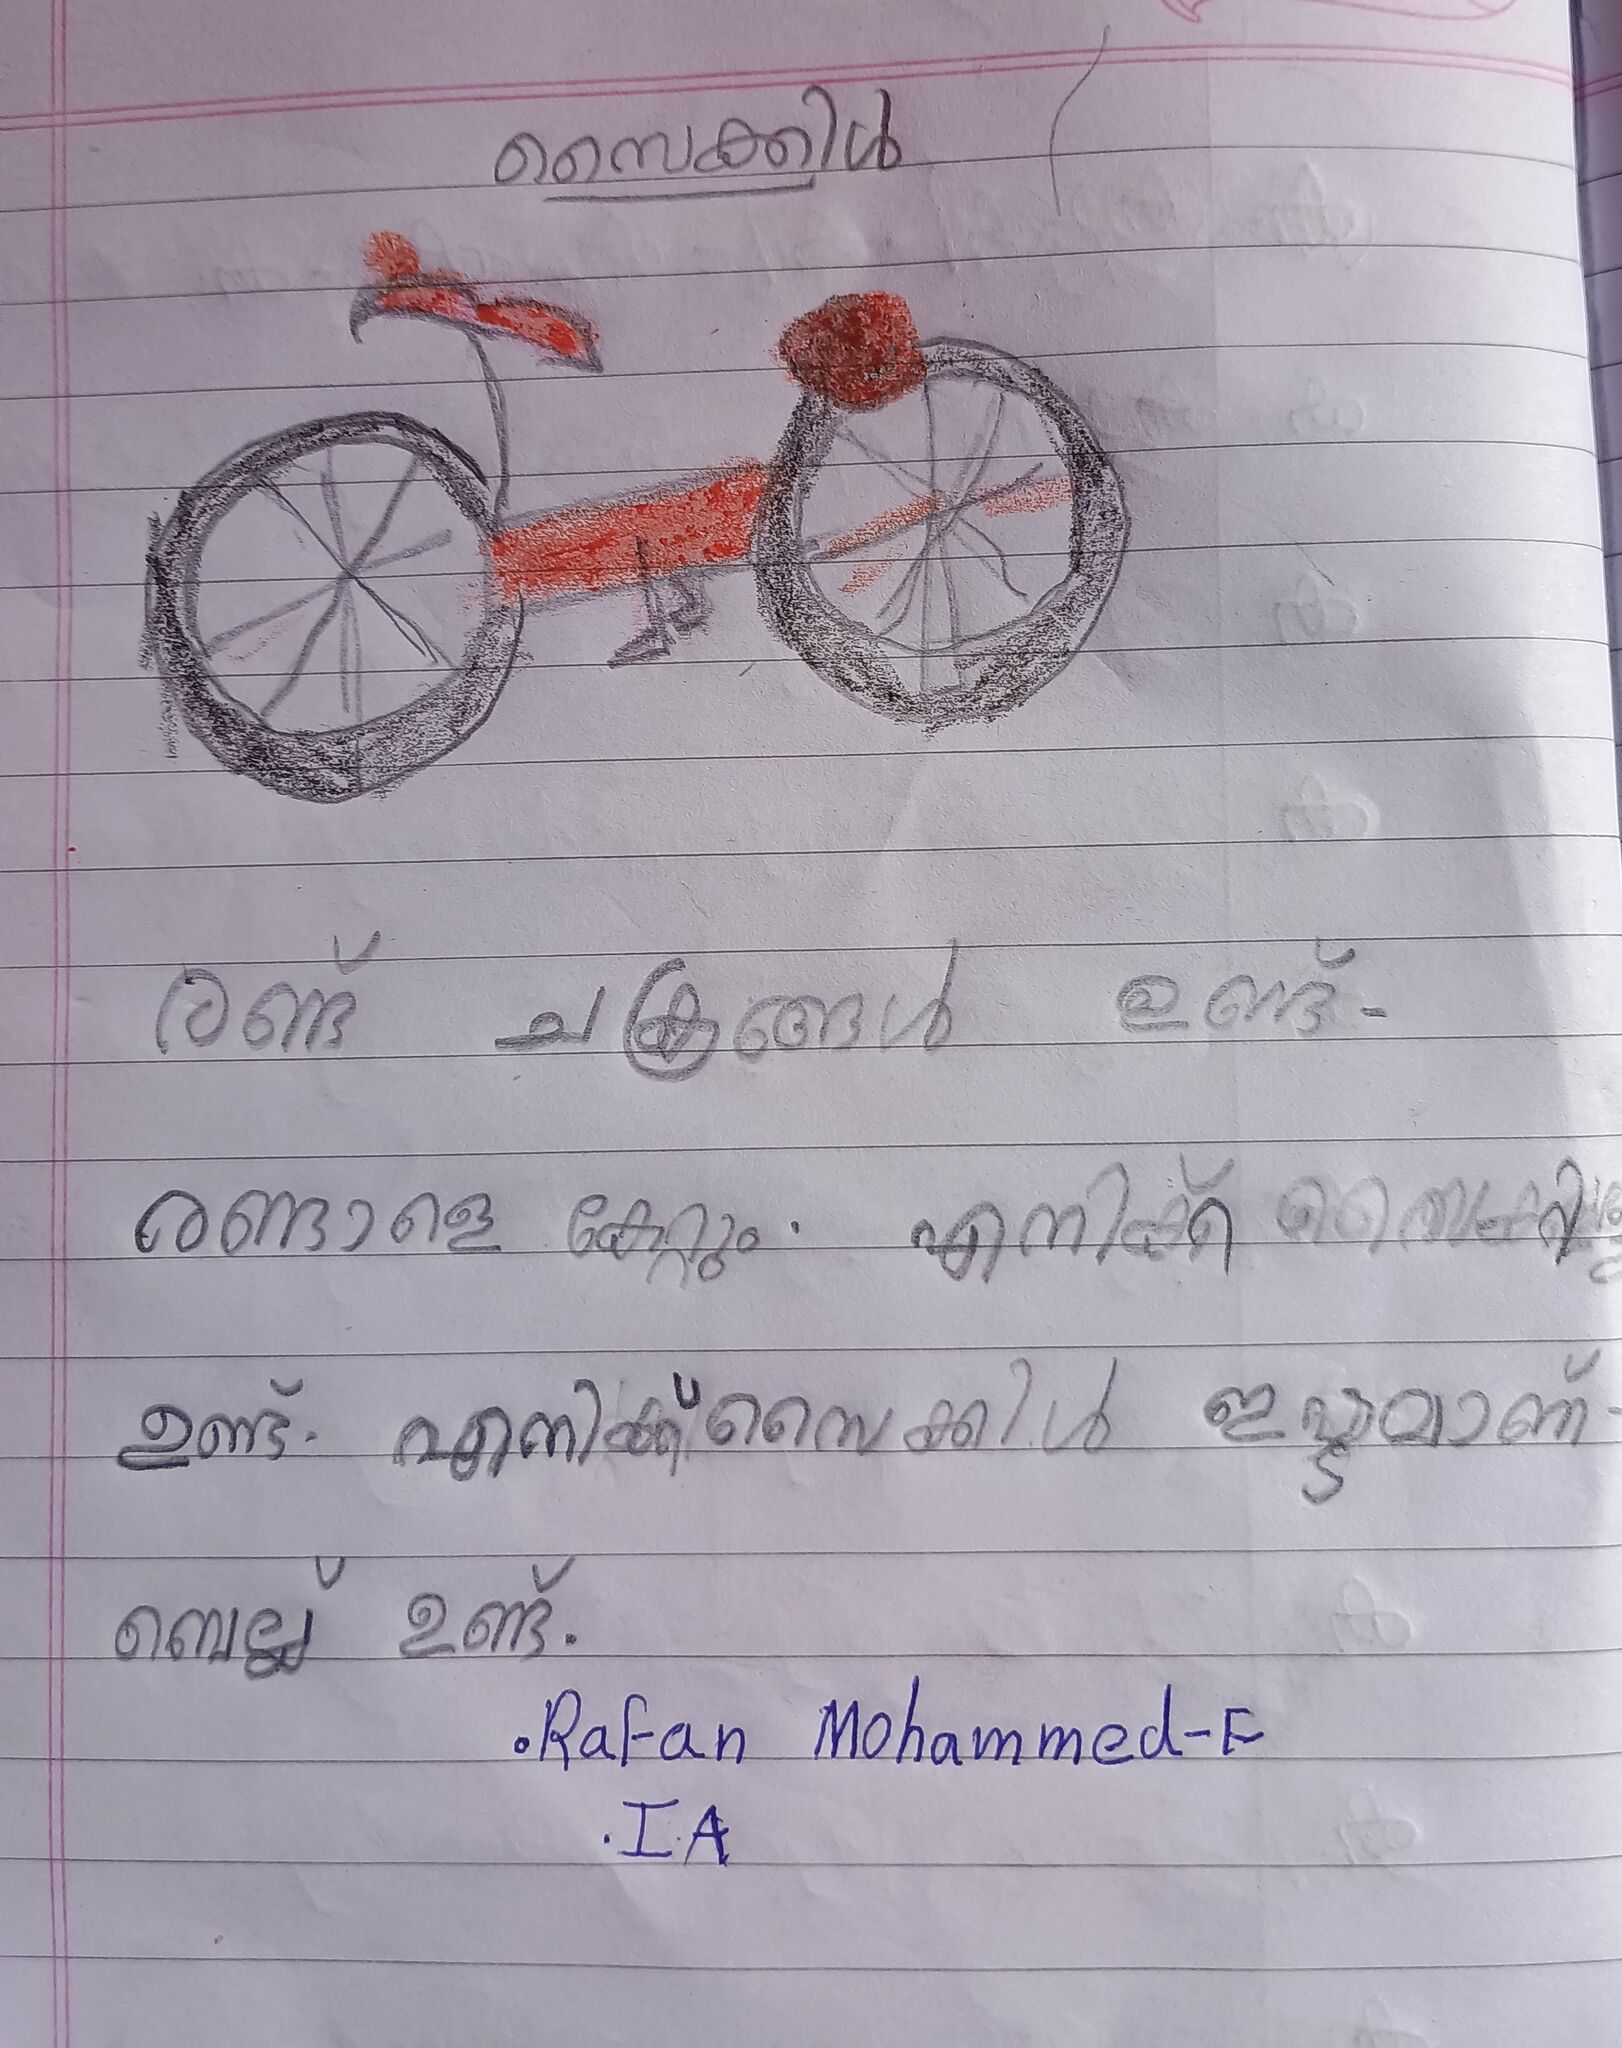 സൈക്കിൾ
രണ്ട് ചക്രങ്ങൾ ഉണ്ട്.
രണ്ടാളെ കേറ്റും. എനിക്ക്
ഉണ്ട്. എനിക്ക് സൈക്കിൾ ഇഷ്ടമാണ്.
ബെല്ല് ഉണ്ട്.
.Rafan Mohammed-E
.I.A